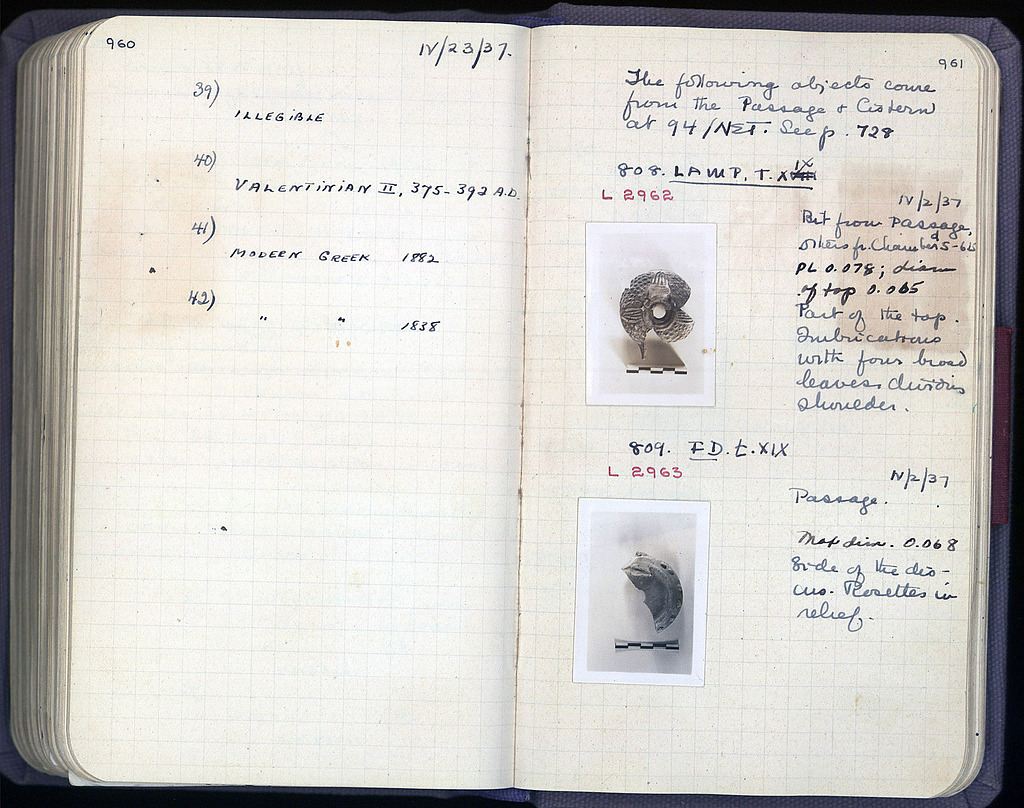 960
IV/23/37.
39)
ILLEGIBLE
40)
VALENTINIAN II, 375-392 A.D.
41)
MODERN GREEK 1882
42)
" " 1838
961
The following objects come
from the Passage & Cistern
at 94/ΝΣΤ. See p. 728
808. LAMP, T. XIX
L 2962
IV/2/37
Bit from Passage,
others fr. Chambers 5-6
PL 0.078; diam
of top 0.065
Part of the top.
Imbrications
with four broad
leaves dividing
shoulder.
809. ID. t. XIX
L 2963
IV/2/37
Passage.
Max dim. 0.068
Side of the dis-
cus. Rosettes in
relief.